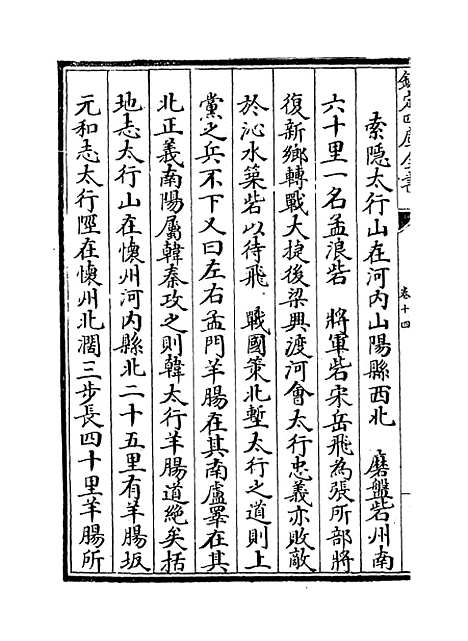 欽定四庫全書
卷十四
索隱太行山在河内山陽縣西北 磨盤砦州南
六十里一名孟浪砦 將軍砦宋岳飛為張所部將
復新鄉轉戰大捷後梁興渡河會太行忠義亦敗敵
於沁水築砦以待飛 戰國策北塹太行之道則上
黨之兵不下又曰左右孟門羊腸在其南盧睪在其
北正義南陽屬韓秦攻之則韓太行羊腸道絶矣括
地志太行山在懷州河内縣北二十五里有羊腸坂
元和志太行陘在懷州北濶三步長四十里羊腸所